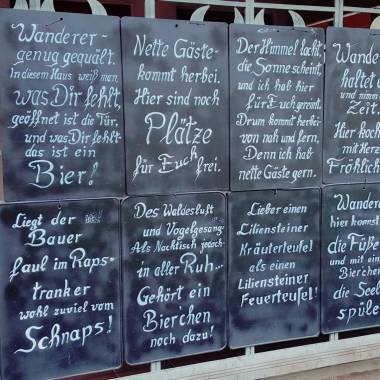 Wanderer -
genug gequält.
In diesem Haus weiß man,
was Dir fehlt,
geöffnet ist die Tür,
und was Dir fehlt
das ist ein
Bier!
Nette Gäste -
kommt herbei.
Hier sind noch
Plätze
für Euch frei.
Der Himmel lacht,
die Sonne scheint,
und ich hab hier
für Euch gereimt.
Drum kommt herbei
von nah und fern,
Denn ich hab
nette Gäste gern.
Wande
haltet
und
Zeit.
Hier koch
mit Herz
Fröhlich
Liegt der
Bauer
faul im Raps -
trank er
wohl zuviel vom
Schnaps!
Des Waldesluft
und Vogelgesang -
Als Nachtisch jedoch
in aller Ruh...
Gehört ein
Bierchen
noch dazu!
Lieber einen
Liliensteiner
Kräuterteufel
als einen
Liliensteiner
Feuerteufel!
Wanderer
hier könnt
die Füße
und mit ein
Bierchen
die Seel
spüle